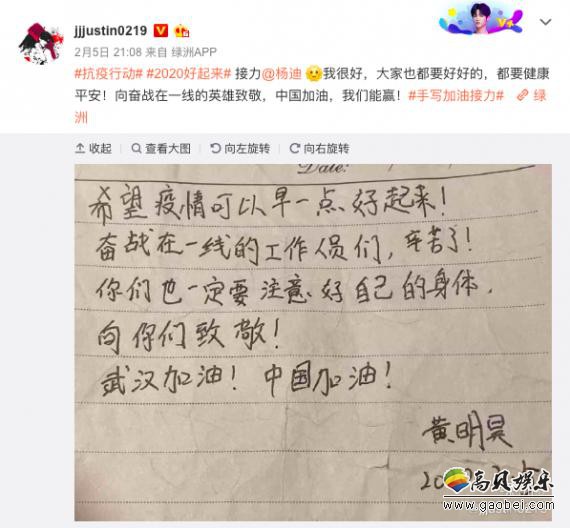 jjjustin0219
2月5日 21:08 来自 绿洲APP
#抗疫行动# #2020好起来# 接力@杨迪 我很好，大家也都要好好的，都要健康
平安！向奋战在一线的英雄致敬，中国加油，我们能赢！#手写加油接力# 绿
洲
收起 查看大图 向左旋转 向右旋转
Date:
希望疫情可以早一点好起来！
奋战在一线的工作人员们，辛苦了！
你们也一定要注意好自己的身体，
向你们致敬！
武汉加油！中国加油！
黄明昊
高贝娱乐
www.gaobei.com